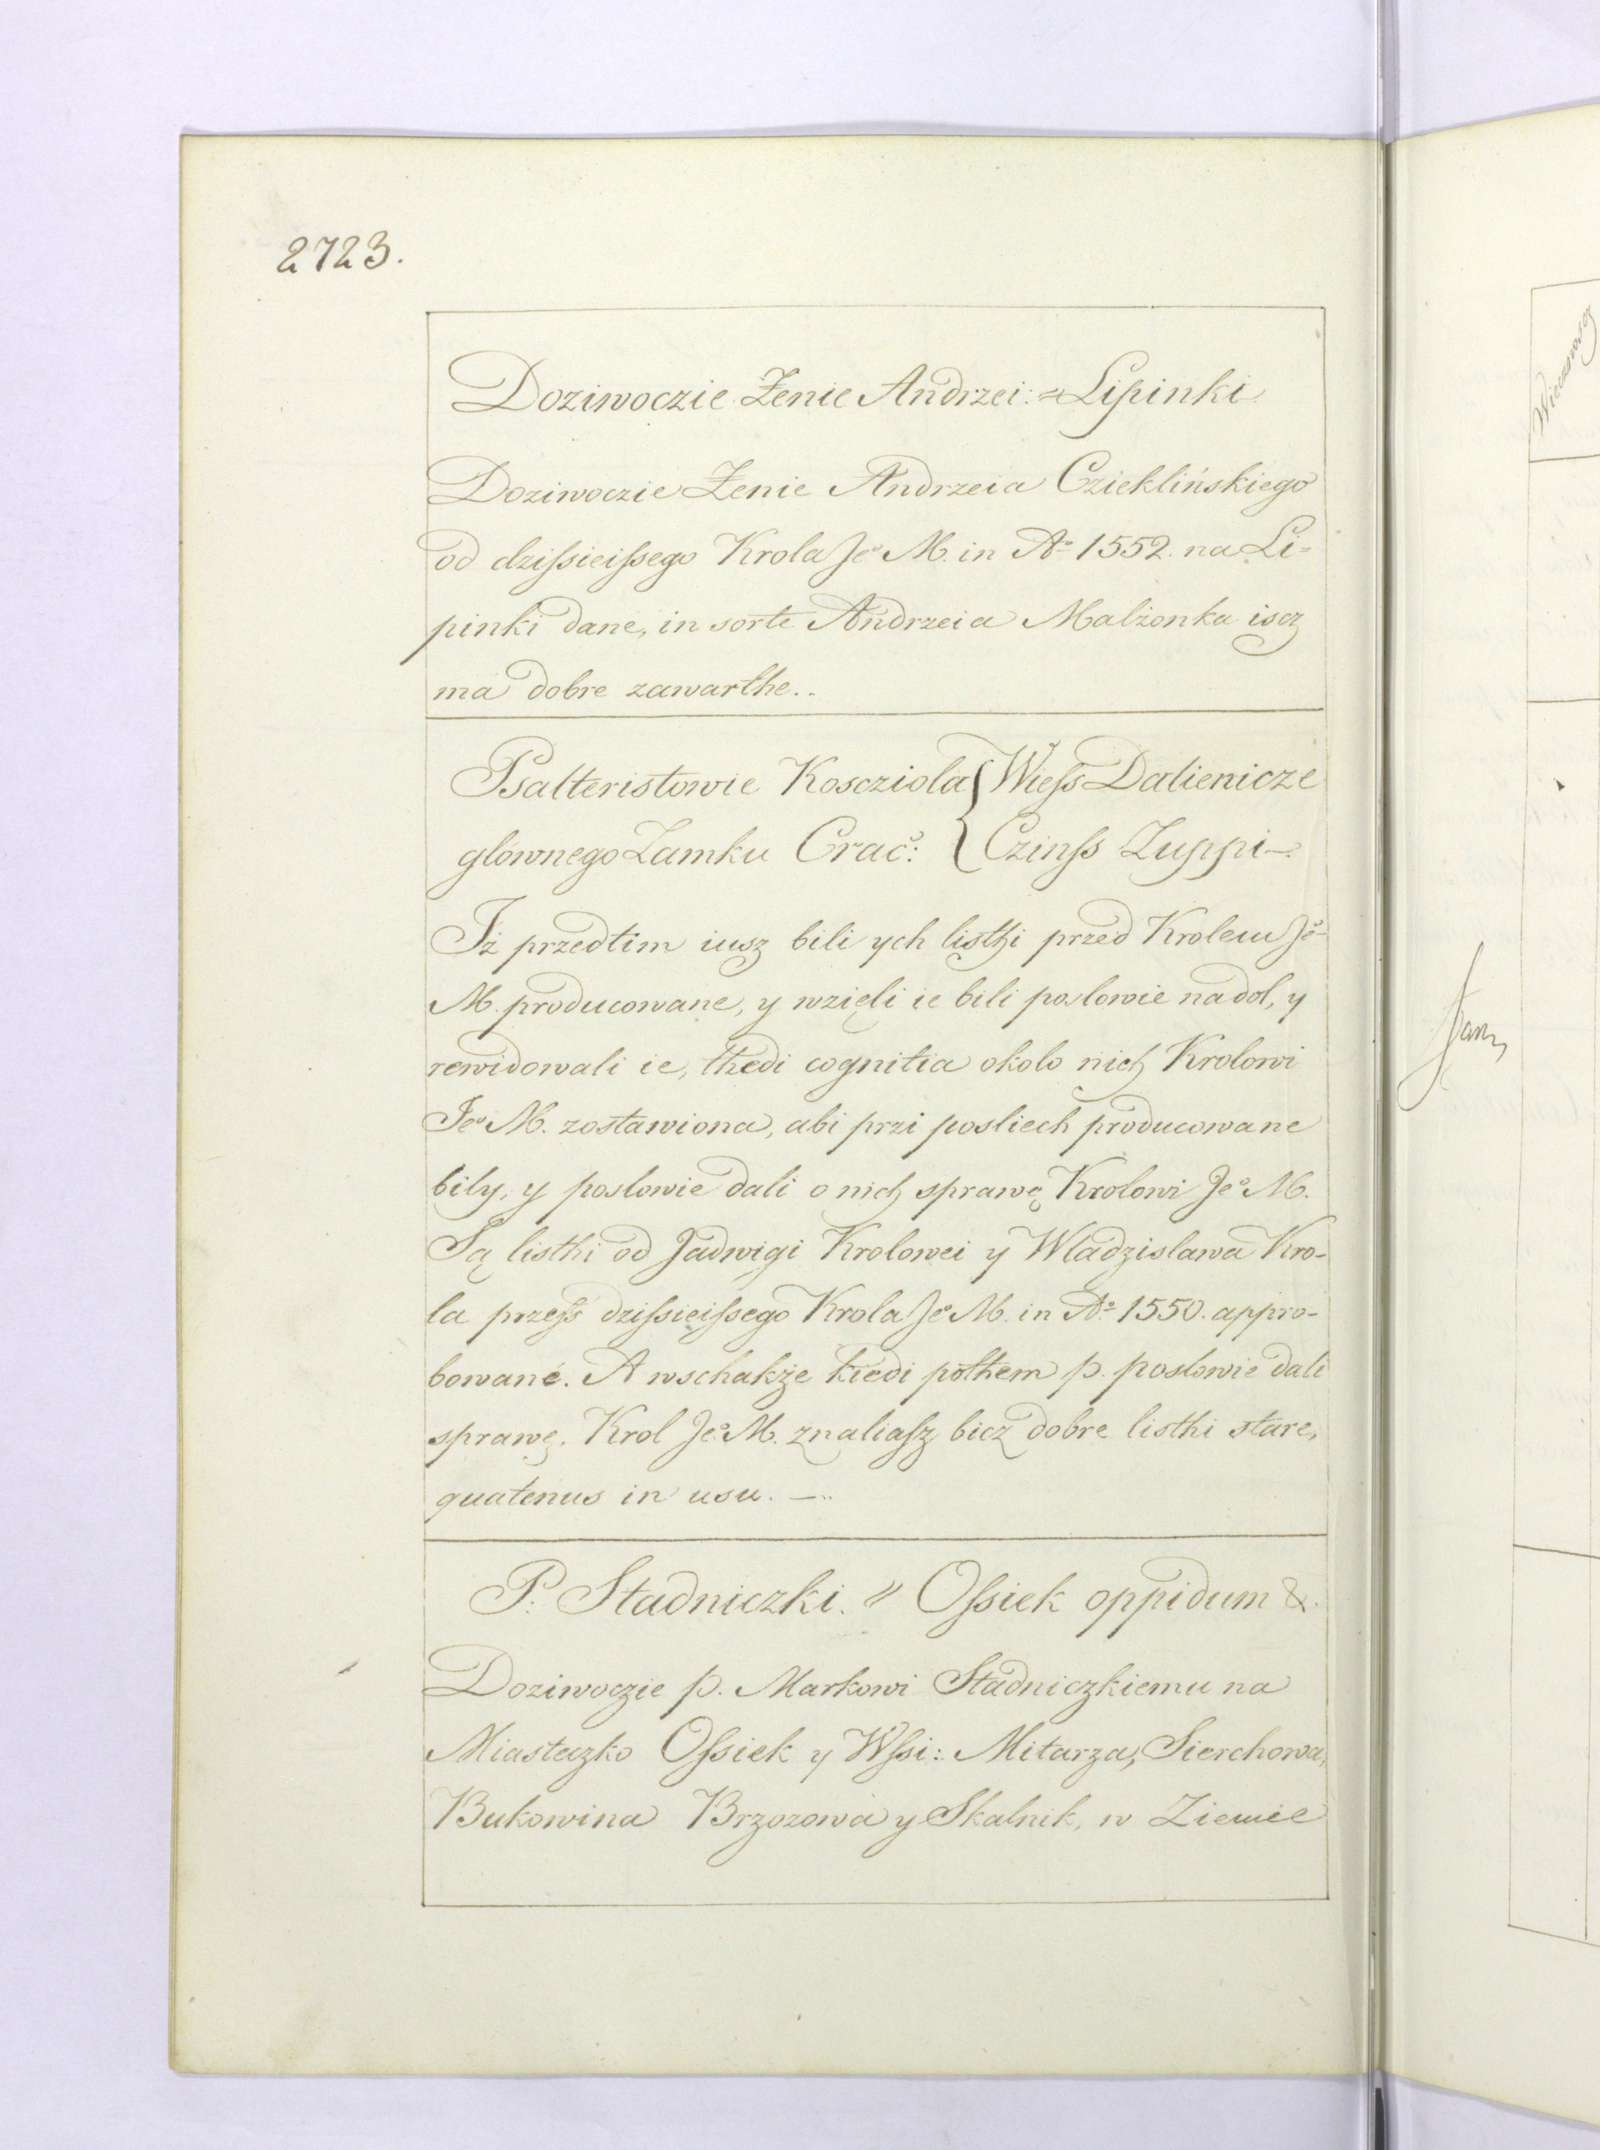 2723.
Doziwoczie Żenie Andrzei: = Lipinki
Doziwoczie Żenie Andrzeia Czieklińskiego
od dzißieißego Krola Jeº M. in Aº 1552. na Li=
pinki dane, in sorte Andrzeia Malżonka iscz
ma dobre zawarthe..
Psalteristowie Kosczioła { Wieß Dalienicze
głównego Zamku Crac: { Czinß Zuppi—.
Iż przedtim iusz bili ych listhi przed Krolem Jº
M. producowane, y wzięli ie bili poslowie na dol, y
rewidowali ie, thedi cognitia okolo nich Krolowi
Jeº M. zostawiona, abi przi posliech producowane
bily, y poslowie dali o nich sprawę Krolowi Jeº M.
Są listhi od Jadwigi Krolowei y Wladzislawa Kro-
la przeß dzißieißego Krola Jeº M. in Aº 1550. appro-
bowane. A wschakże kiedi pothem p. poslowie dali
sprawę. Krol Jeº M. znaliaß bicz dobre listhi stare,
quatenus in usu. —..
P. Stadniczki. " Oßiek oppidum &.
Doziwoczie p. Markowi Stadniczkiemu na
Miasteczko Oßiek y Wßi: Mitarza, Sierchowa,
Bukowina Brzozowa y Skalnik, w Ziemie